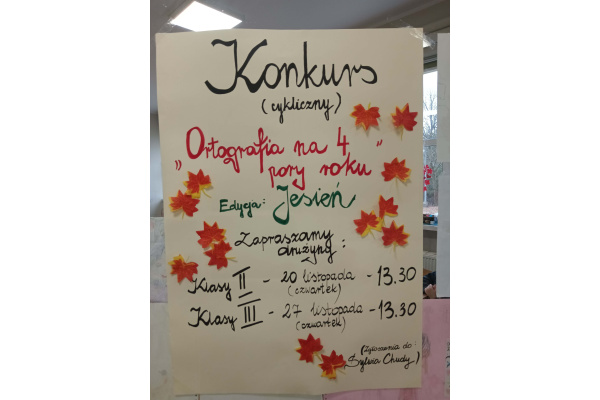 Konkurs
(cykliczny)
„Ortografia na 4
pory roku"
Edycja: Jesień
Zapraszamy
drużyny:
Klasy II - 20 listopada - 13.30
(czwartek)
Klasy III - 27 listopada - 13.30
(czwartek)
(Zgłoszenia do:
Sylwia Chudy)